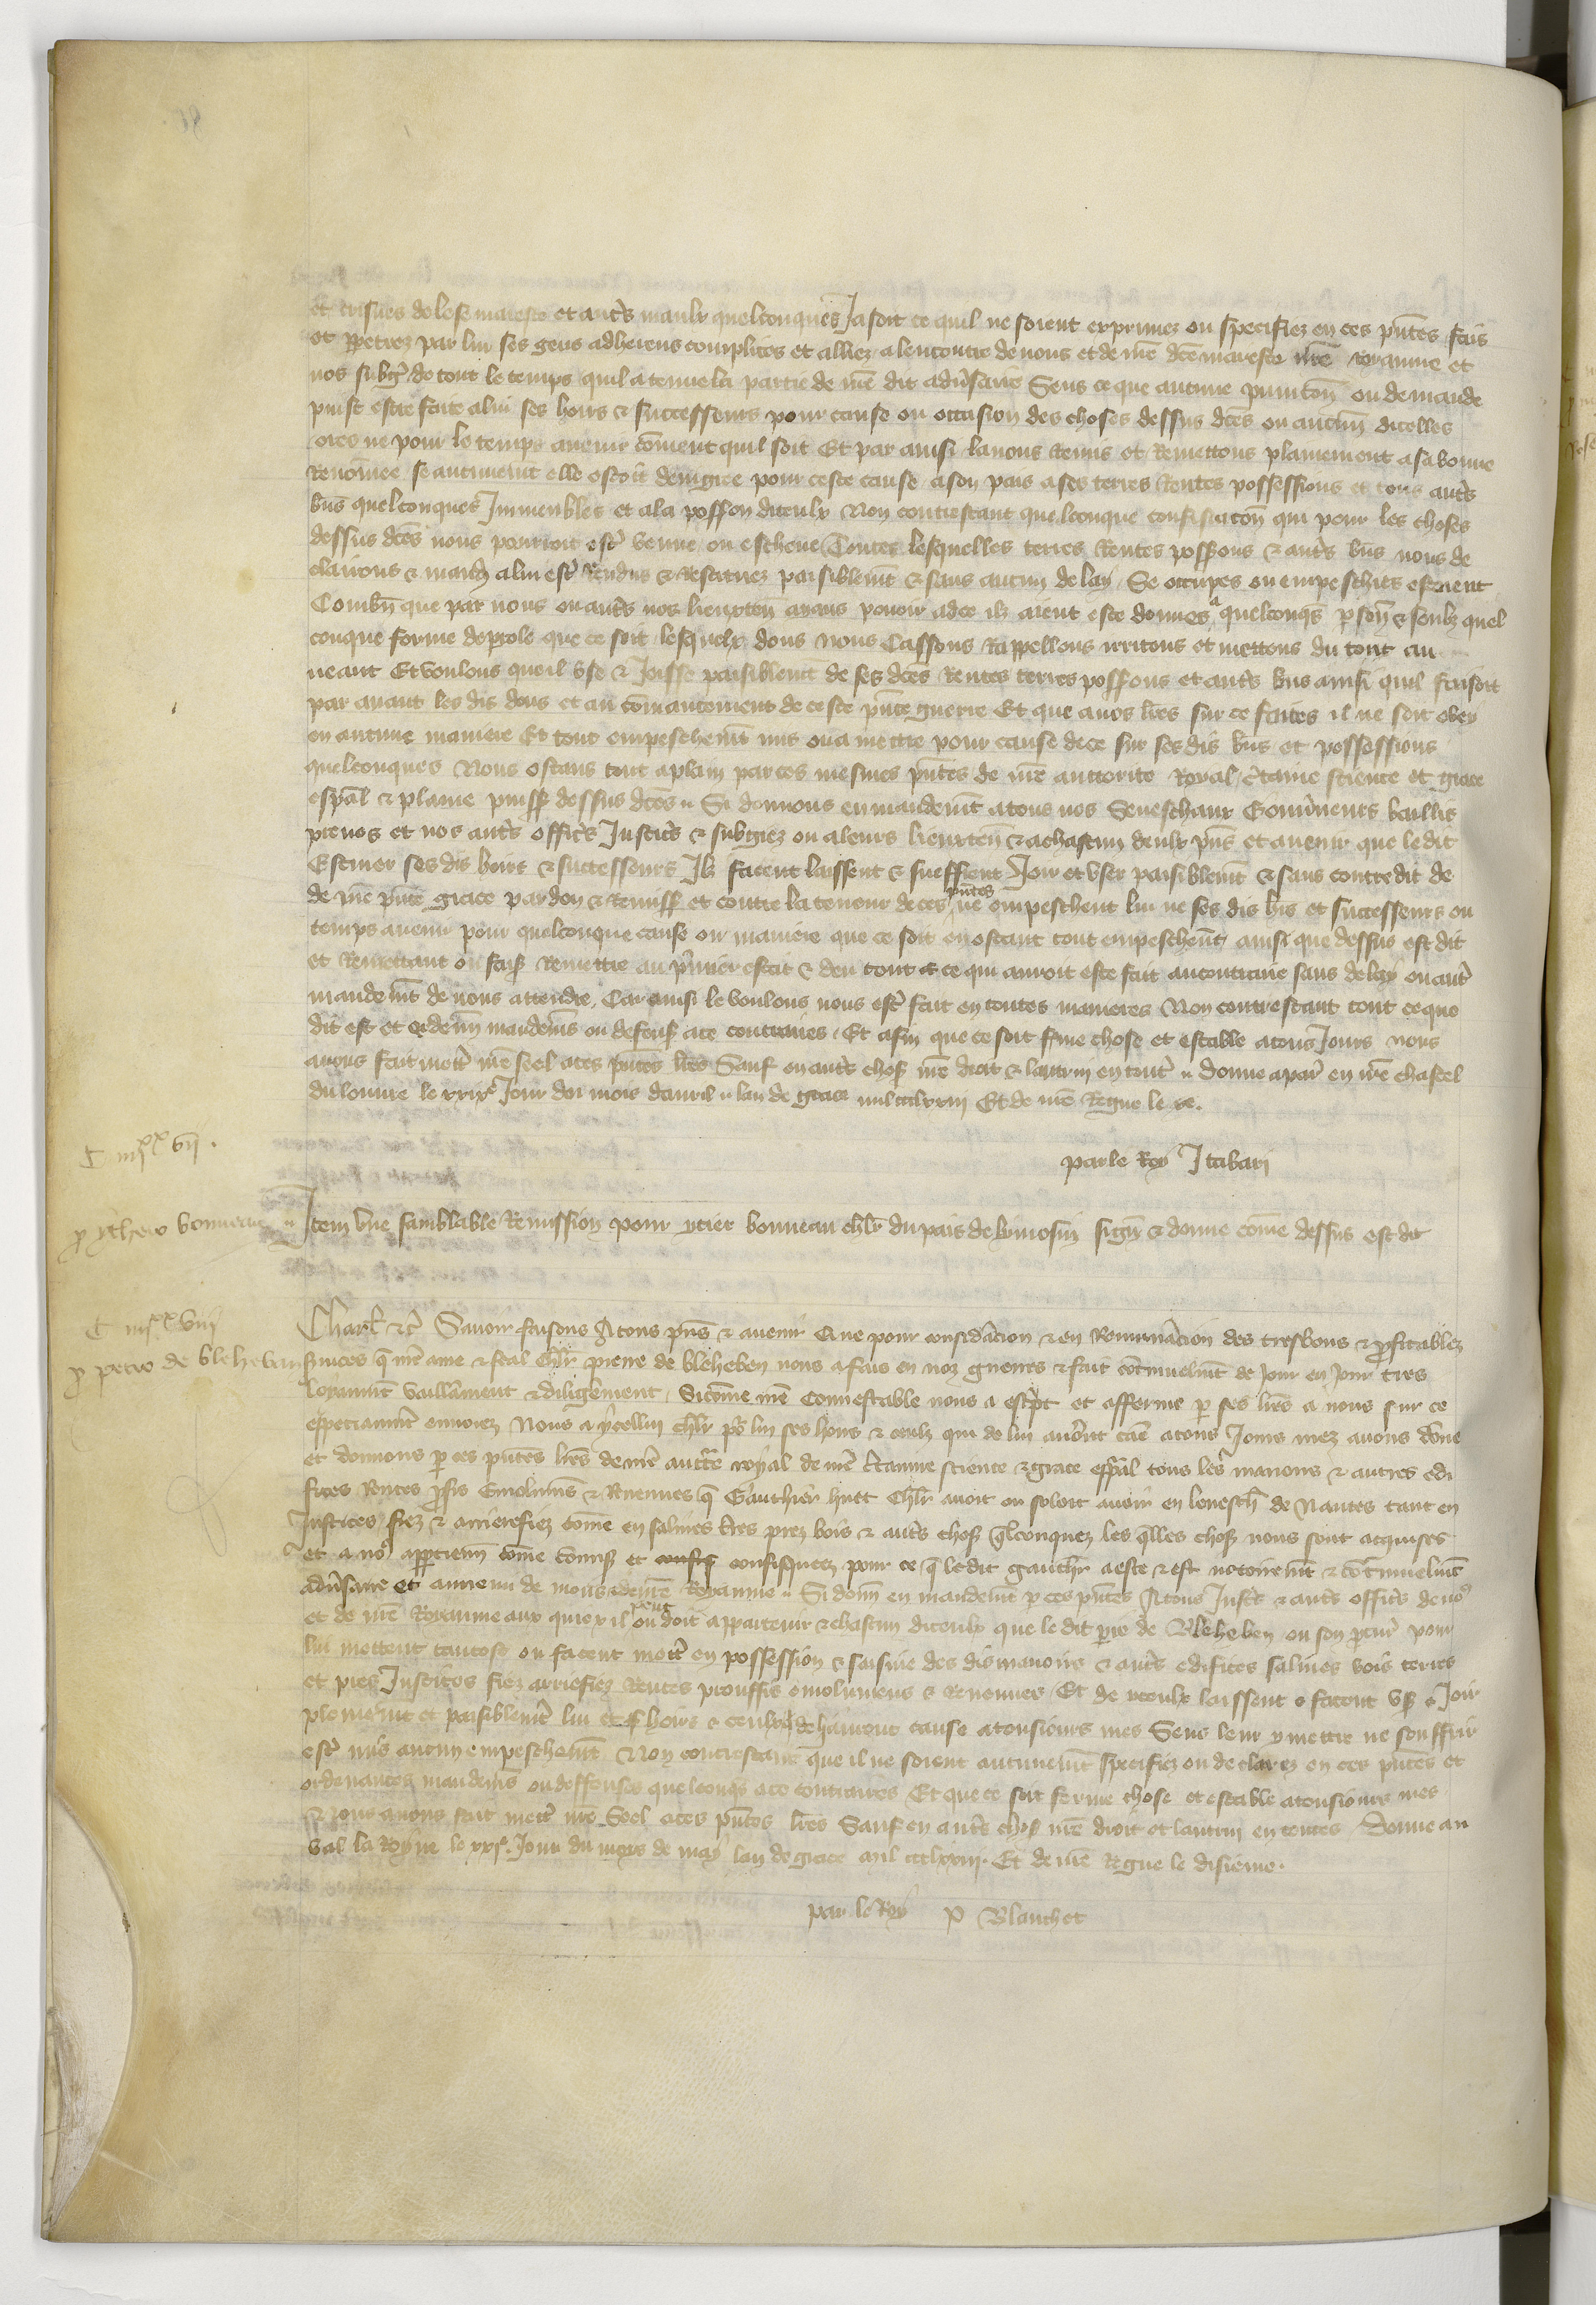 et crismes de lese maieste et aut̃s maulx quelconques Ja soit ce quil ne soient exprimez ou specifiez en ces p̃ntes fais
et ꝑpetrez par lui ses gens adherens complices et alliez a lencontre de nous et de n̄re d̄ce maieste n̄re royaume et
nos subg̃ de tout le temps quil a tenue la partie de n̄re dit adũsaire Sens ce que aucune punic̃on ou demande
puist estre faite a lui ses hoirs & successeurs pour cause ou occasion des choses dessus d̄ces ou aucun̄ dicelles
ores ne pour le temps auenir cōment quil soit Et par ainsi lauons Remis et Remettons plainement a sa bonne
Renōmee se aucunem̄t elle estoit denigree pour ceste cause a son pais a ses terres Rentes possessions et tous aut̃s
bn̄s quelconques Jmmeubles et a la possion diceulx Non contrestant quelconque confiscac̃on qui pour les choses
dessus d̄ces nous pourroit est̃ venue ou escheue Toutes lesquelles terres Rentes possions & aut̃s bn̄s nous de
clairons & mand̃ a lui est̃ Rendus & Restituez paisiblem̄t & sans aucun delay Se occupes ou empeschies estoient
Combn̄ que par nous ou aut̃s nos lieuxten̄ aians pouoir a dce ilz aient este donnes a quelconq̃s ꝑson̄ & soubz quel
conque forme de ꝑole que ce soit lesquelx dons nous Cassons Rappellons irritons et mettons du tout au
neant Et voulons que il vse & Joisse paisiblem̄t de ses d̄ces Rentes terres possions et aut̃s bn̄s ainsi quil faisoit
par auant les dis dons et au cōmancement de ceste p̃nte guerre Et que a nos lr̄es sur ce faites il ne soit obey
en aucune maniere Et tout empeschem̄t mis ou a mettre pour cause de ce sur ses dis bn̄s et possessions
quelconques Nous ostans tout a plain par ces mesmes p̃ntes de n̄re auctorite Royal c̃taine science et grace
esp̃al & plaine puiss dessus d̄ces Si donnons en mandem̄t a tous nos Seneschaux Gouũneurs baillis
preuos et nos aut̃s offic̃s Justic̃s & subgiez ou a leurs lieuxten̄ & a chascun deulx p̃ns et auenir que ledit
ses dis hoirs & successeurs Ilz facent laissent & sueffrent Joir et vser paisiblem̄t & sans contredit de
de n̄re p̃nte grace pardon & Remiss et contre la teneur de ces p̃ntes ne empeschent lui ne ses dis hrs et successeurs ou
temps auenir pour quelconque cause ou maniere que ce soit en ostant tout empeschem̄t ainsi que dessus est dit
et Remettant ou fais̃ Remettre au p̃mier estat & deu tout ce qui auroit este fait au contraire sans delay ou aut̃
mandem̄t de nous attendre Car ainsi le voulons nous est̃ fait en toutes manieres Non contrestant tout ce que
dit est et orden̄n mandem̄s ou defens̃ a ce contraires Et afin que ce soit f̃me chose et estable a tous Jours nous
auons fait mett̃ n̄re seel a ces p̃ntes lr̄es Sauf en aut̃s chos̃ n̄re droit & lautrui en tout̃ Donne a par̃ en n̄re chastel
du louure le xxixe Jour du mois dauril lan de grace mil ccclxxiij Et de n̄re Regne le xe.
par le Roy J tabari
C iiijxx vij.
ꝑ ythero bonneau
Item vne samblable Remission pour ytier bonneau chlr̄ du pais de lymosin sign̄ & donne cōme dessus est dit
C iiijxx viij
ꝑ petro de blehebau
Charl̃ &c̃ Sauoir faisons A tous p̃ns & auenir Que pour considãcion & en Remunãcion des tresbons & ꝓfitablez
s̃uices q̄ n̄re ame & feal chlr̄ pierre de bleheben nous a fais en noz guerres & fait cōtinuelm̄t de Jour en Jour tres
loyaum̄t vaillãment & diligẽment Sicōme n̄re Connestable nous a escrip̃t et afferme ꝑ ses lr̄es a nous sur ce
especiaum̄t enuoiez Nous a ycellui chlr̄ po᷑ lui ses hoirs & ceulx qui de lui auront cāe a tous Jours mez auons dōne
et donnons ꝑ ces p̃ntes lr̄es de n̄re auct̃te royal de n̄re c̃taine science & grace esp̃al tous les manoirs & autres edi
fices Rentes ꝓfis Emolum̄s & Reuenues q̄ Gauthier huet chlr̄ auoit ou soloit auoir en leuesch̃ de Nantes tant en
Justices fiez & arrierefiez cōme en salines t̃res prez bois & aut̃s chos̃ q̄lconquez les q̄lles chos̃ nous sont acquises
et a no᷑ apꝑtienn̄ cōme cōmis̃ et confis̃ confisquez pour ce q̄ ledit gauth̃r a este & est notoirem̄t & cōtinuelm̄t
adũsaire et annemi de nous & de n̄re Royaume Si donn̄ en mandem̄t ꝑ ces p̃ntes A tous Just̃s & aut̃s offic̃s de no᷑
et de n̄re Royaume aux quiex il peut ou doit appartenir & chascun diceulx que le dit pr̄re de Bleheben ou son ꝓcur̃ pour
lui mettent tantost ou facent mett̃ en possession & saisine des dis manoirs & aut̃s edifices salines bois terres
et prez Justices fiez arrierefiez Rentes prouffis emolumens & Reuenues Et de yceulx laissent & facent vs̃ & Joir
plainem̄t et paisiblem̄t lui et s̃ hoirs & ceulx de li auront cause a tousiours mes Sens leur y mettre ne souffrir
est̃ mis aucun empeschem̄t Non contrestant que il ne soient aucunem̄t specifiez ou declarez en ces p̃ntes et
ordenances mandem̄s ou deffenses quelconq̃s a ce contraires Et que ce soit ferme chose et estable a tousiours mes
Nous auons fait mett̃ n̄re Seel a ces p̃ntes lr̄es Sauf en aut̃s chos̃ n̄re droit et lautrui en toutes Donne au
val la Royne le xxje. Jour du moys de may lan de grace mil ccclxxiij. Et de n̄re Regne le disieme.
par le Roy P Blanchet